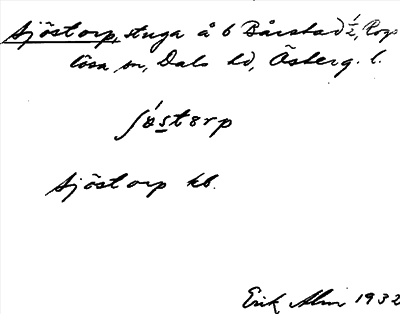 Sjöstorp, stuga å 6 Bårstad ½, Rogs
lösa sn, Dals hd, Österg. l.
Sjöstorp kb.
Erik Alm 1932